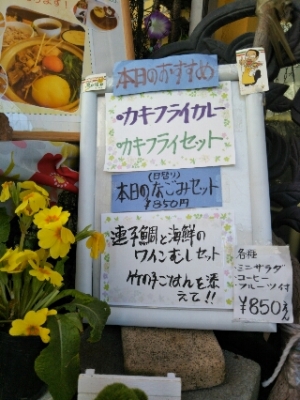 本日のおすすめ
カキフライカレー
カキフライセット
(日替り)
本日のなごみセット
¥850円
連子鯛と海鮮の
ワインむしセット
竹の子ごはんを添
えて!!
各種
ミニサラダ
コーヒー
フルーツ付
¥850え